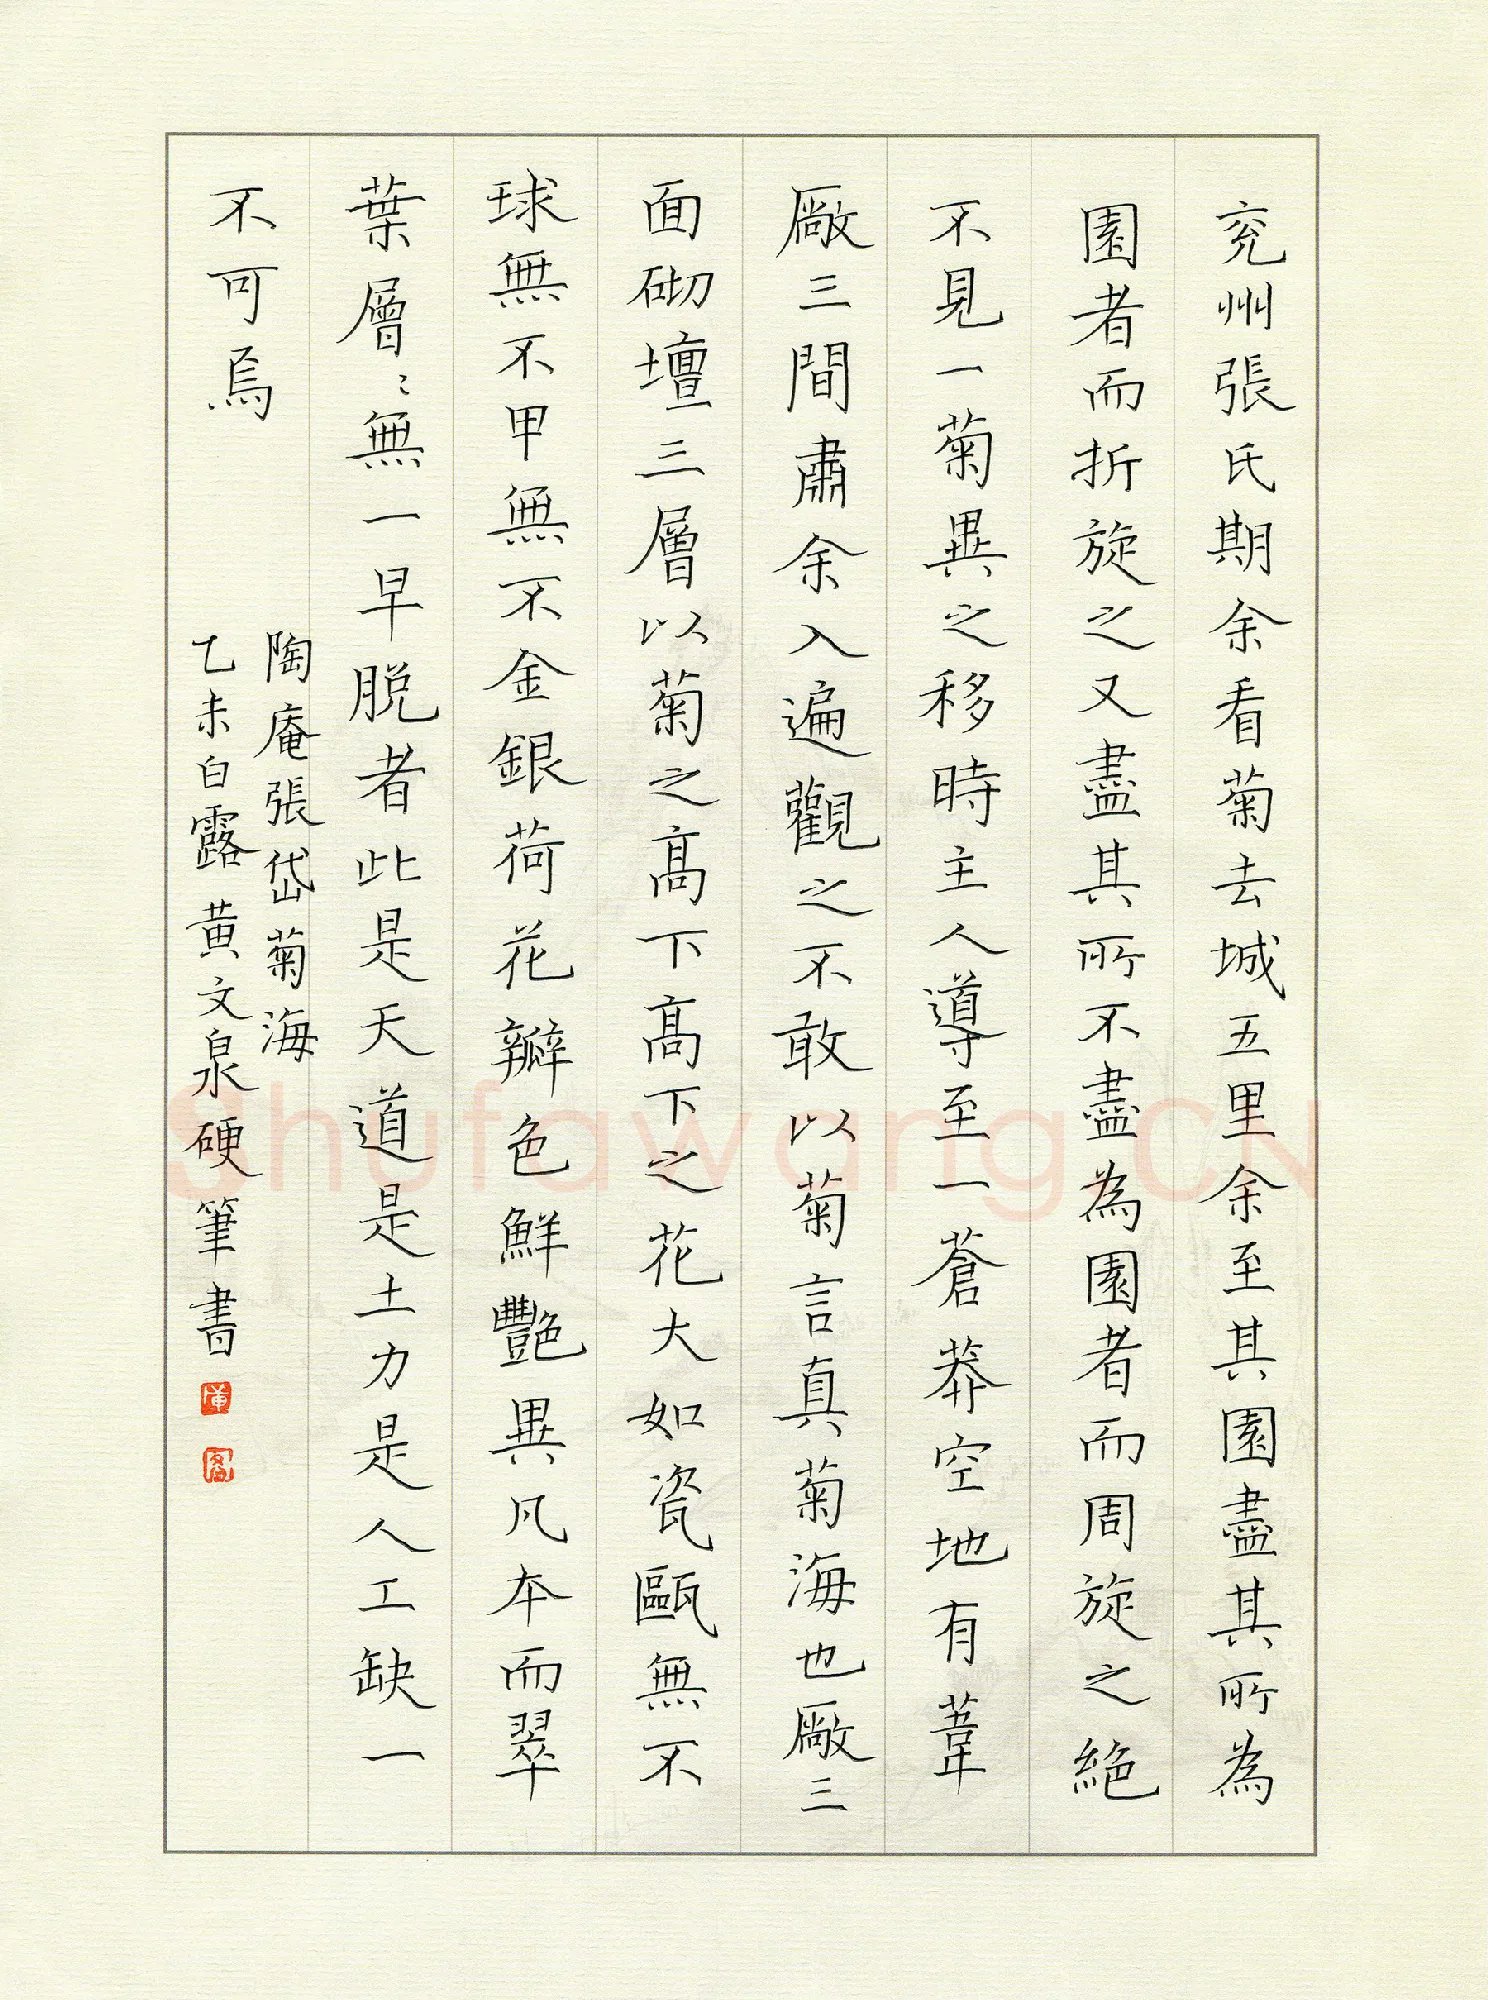 兖州張氏期余看菊去城五里余至其園盡其所為
園者而折旋之又盡其所不盡為園者而周旋之絕
不見一菊異之移時主人導至一蒼莽空地有葦
廠三間肅余入遍觀之不敢以菊言真菊海也廠三
面砌壇三層以菊之高下高下之花大如瓷甌無不
球無不甲無不金銀荷花瓣色鮮艷異凡本而翠
葉層〻無一早脱者此是天道是土力是人工缺一
不可焉
陶庵張岱菊海
乙未白露黄文泉硬筆書
Shufawang.CN